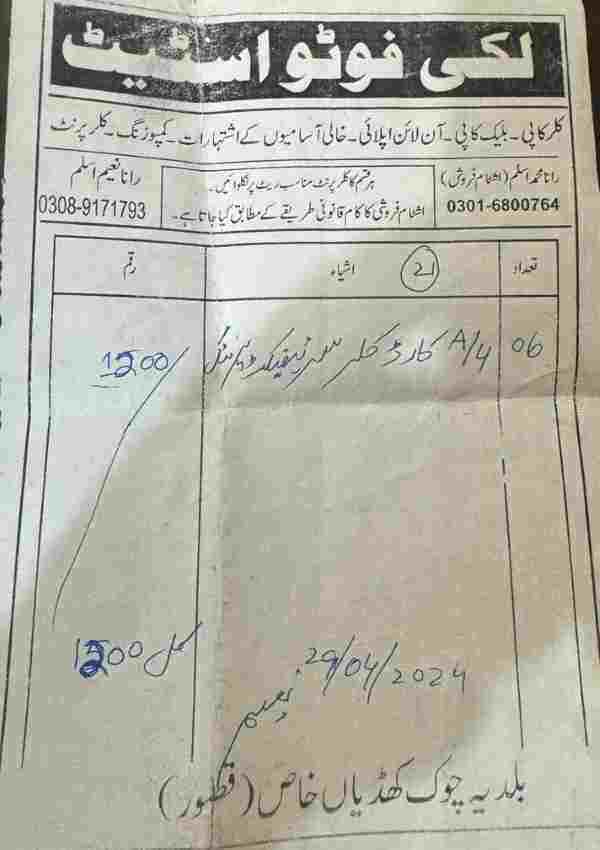 لکی فوٹو اسٹیٹ
کلر کاپی۔ بلیک کاپی۔ آن لائن اپلائی۔ خالی آسامیوں کے اشتہارات۔ کمپوزنگ۔ کلر پرنٹ
رانا محمد اسلم (اشٹام فروش)
0301-6800764
ہر قسم کا کلر پرنٹ مناسب ریٹ پر نکلوائیں۔
اشٹام فروشی کا کام قانونی طریقے کے مطابق کیا جاتا ہے۔
رانا نعیم اسلم
0308-9171793
تعداد اشیاء 21 رقم
06 A/4 کارڈ کلر سرٹیفیکیٹ 1200/
کل 1200
29/04/2024
نعیم
بلدیہ چوک کھڈیاں خاص (قصور)